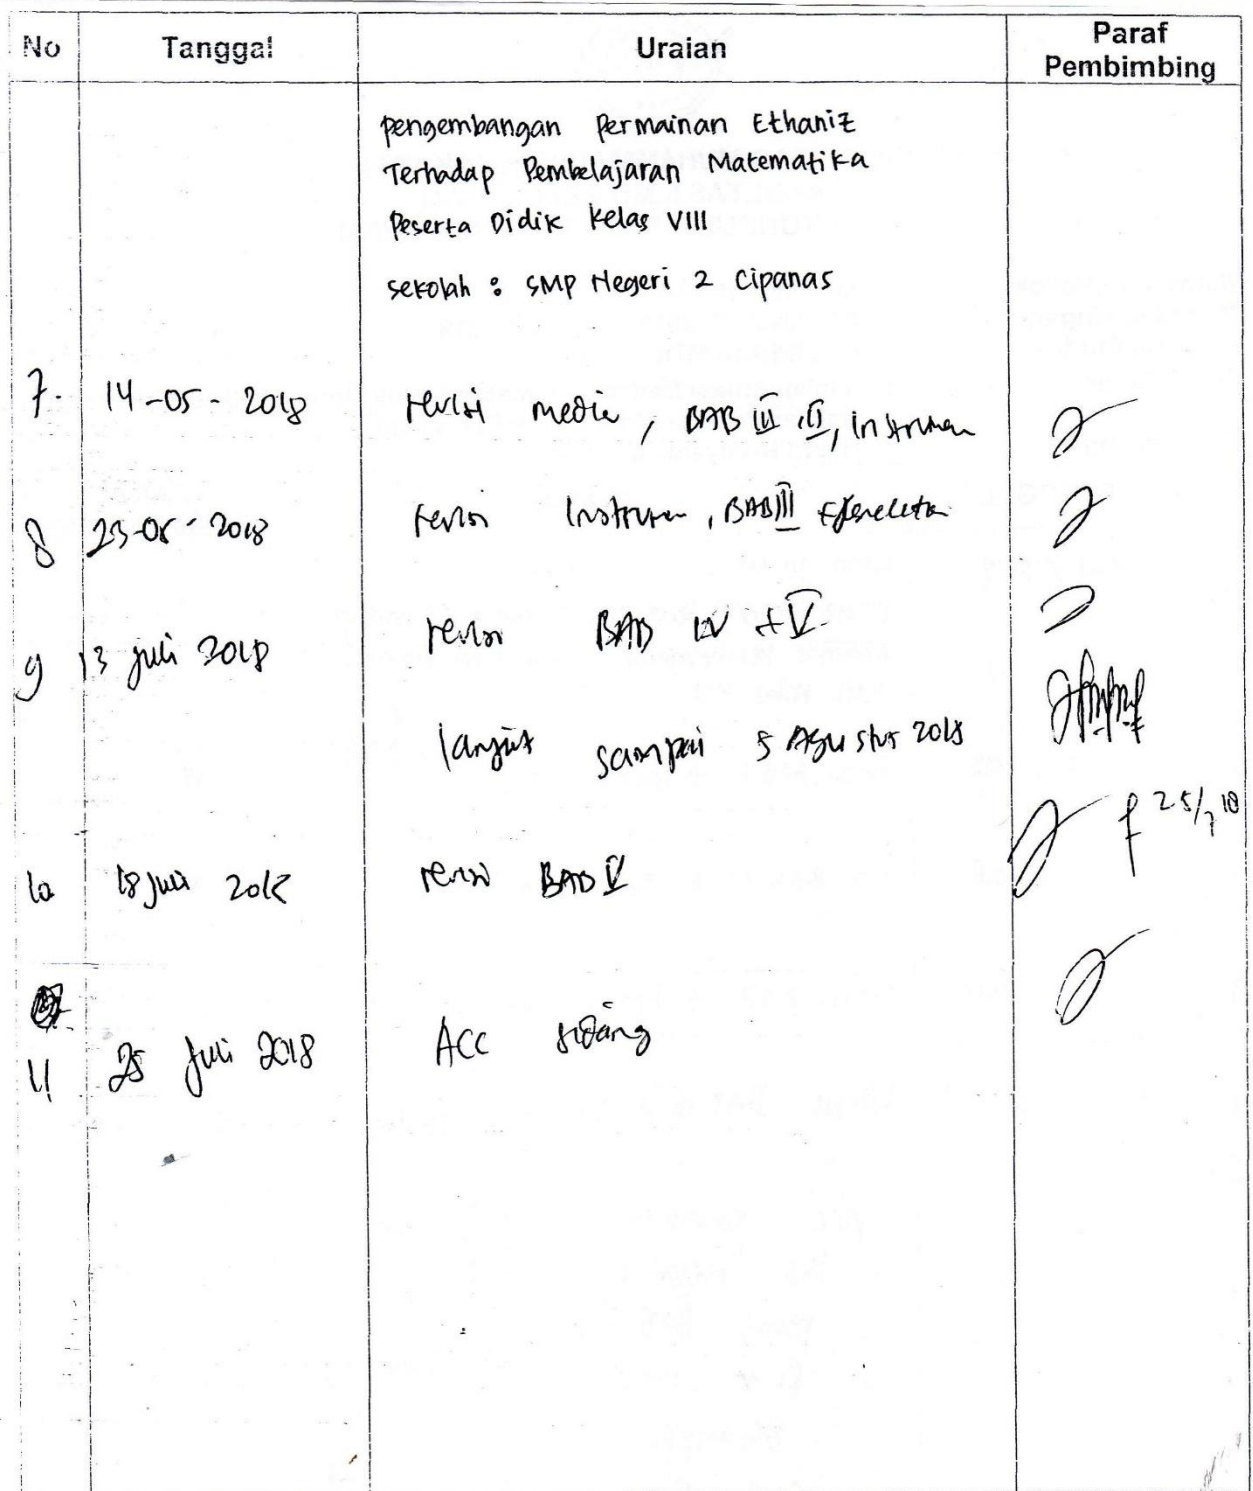 No Tanggal Uraian Paraf Pembimbing
pengembangan Permainan Ethaniz
Terhadap Pembelajaran Matematika
Peserta Didik Kelas VIII
sekolah : SMP Negeri 2 Cipanas
7. 14-05-2018 revisi media, BAB III, II, instrumen
8 23-05-2018 revisi Instrumen, BAB III
9 13 juli 2018 revisi BAB IV + V
lanjut sampai 5 Agustus 2018
25/7 18
10 18 juli 2018 revisi BAB V
11 25 juli 2018 ACC sidang